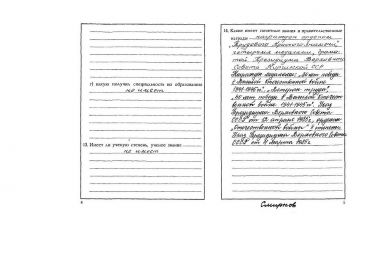 г) какую получил специальность по образованию
не имеет
13. Имеет ли ученую степень, ученое звание
не имеет
4
14. Какие имеет почетные звания и правительственные
награды награжден орденом
"Трудового Красного Знамени"
четырьмя медалями, грамо-
той Президиума Верховного
Совета ССР
Награжден медалями: лет победы
в Великой Отечественной войне
1941-1945гг", "Ветеран труда",
"40 лет победы в Великой Отечест-
венной войне 1941-1945гг" Указ
Президиума Верховного Совета
СССР от 12 апреля 1985г, орденом
"Отечественной войны" степени
Указ Президиума Верховного Совета
СССР от 11 марта 1985г
Смирнов
5